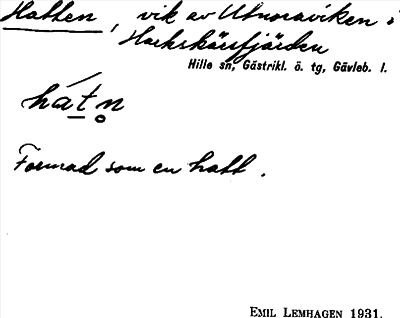 Hatten, vik av Utnoraviken i
Harkskärsfjärden
Hille sn, Gästrikl. ö. tg, Gävleb. l.
hátn̥
Formad som en hatt.
EMIL LEMHAGEN 1931.